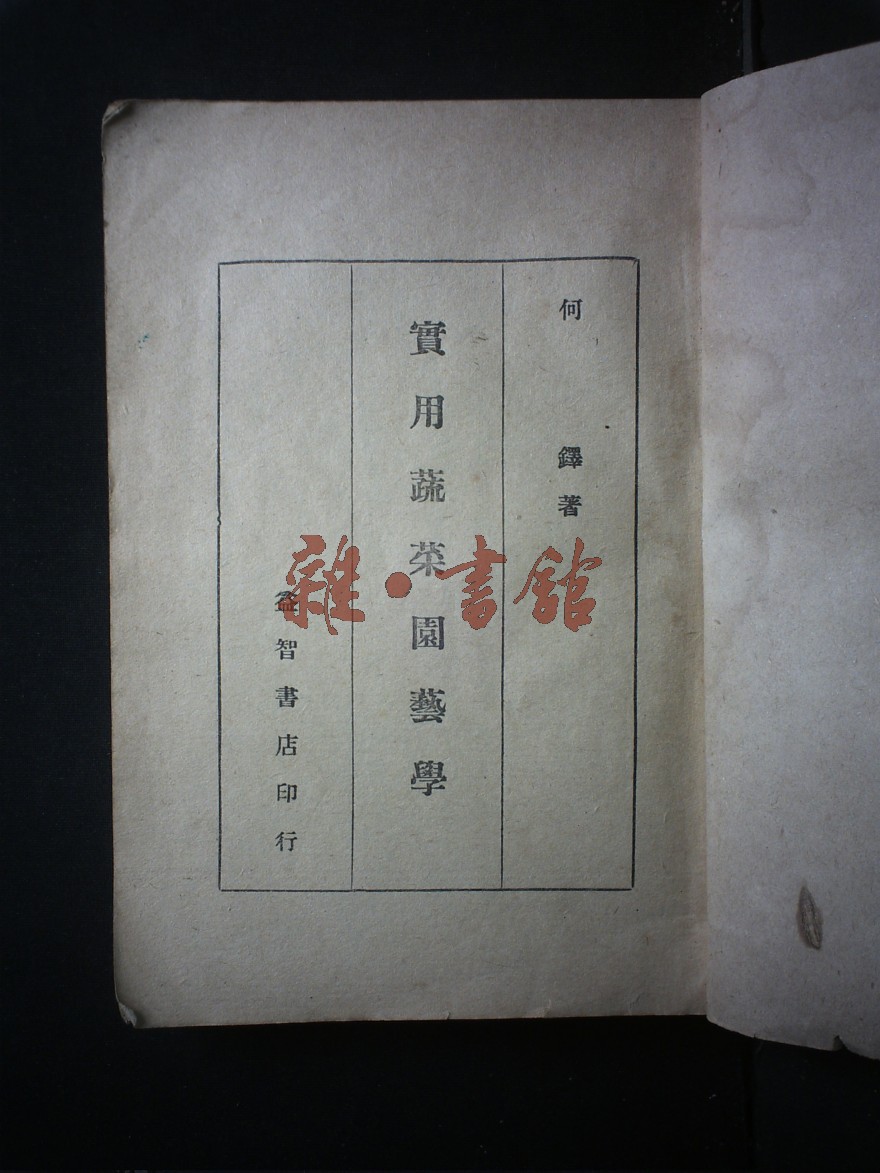 何鐸著
實用蔬菜園藝學
益智書店印行
雜·書館